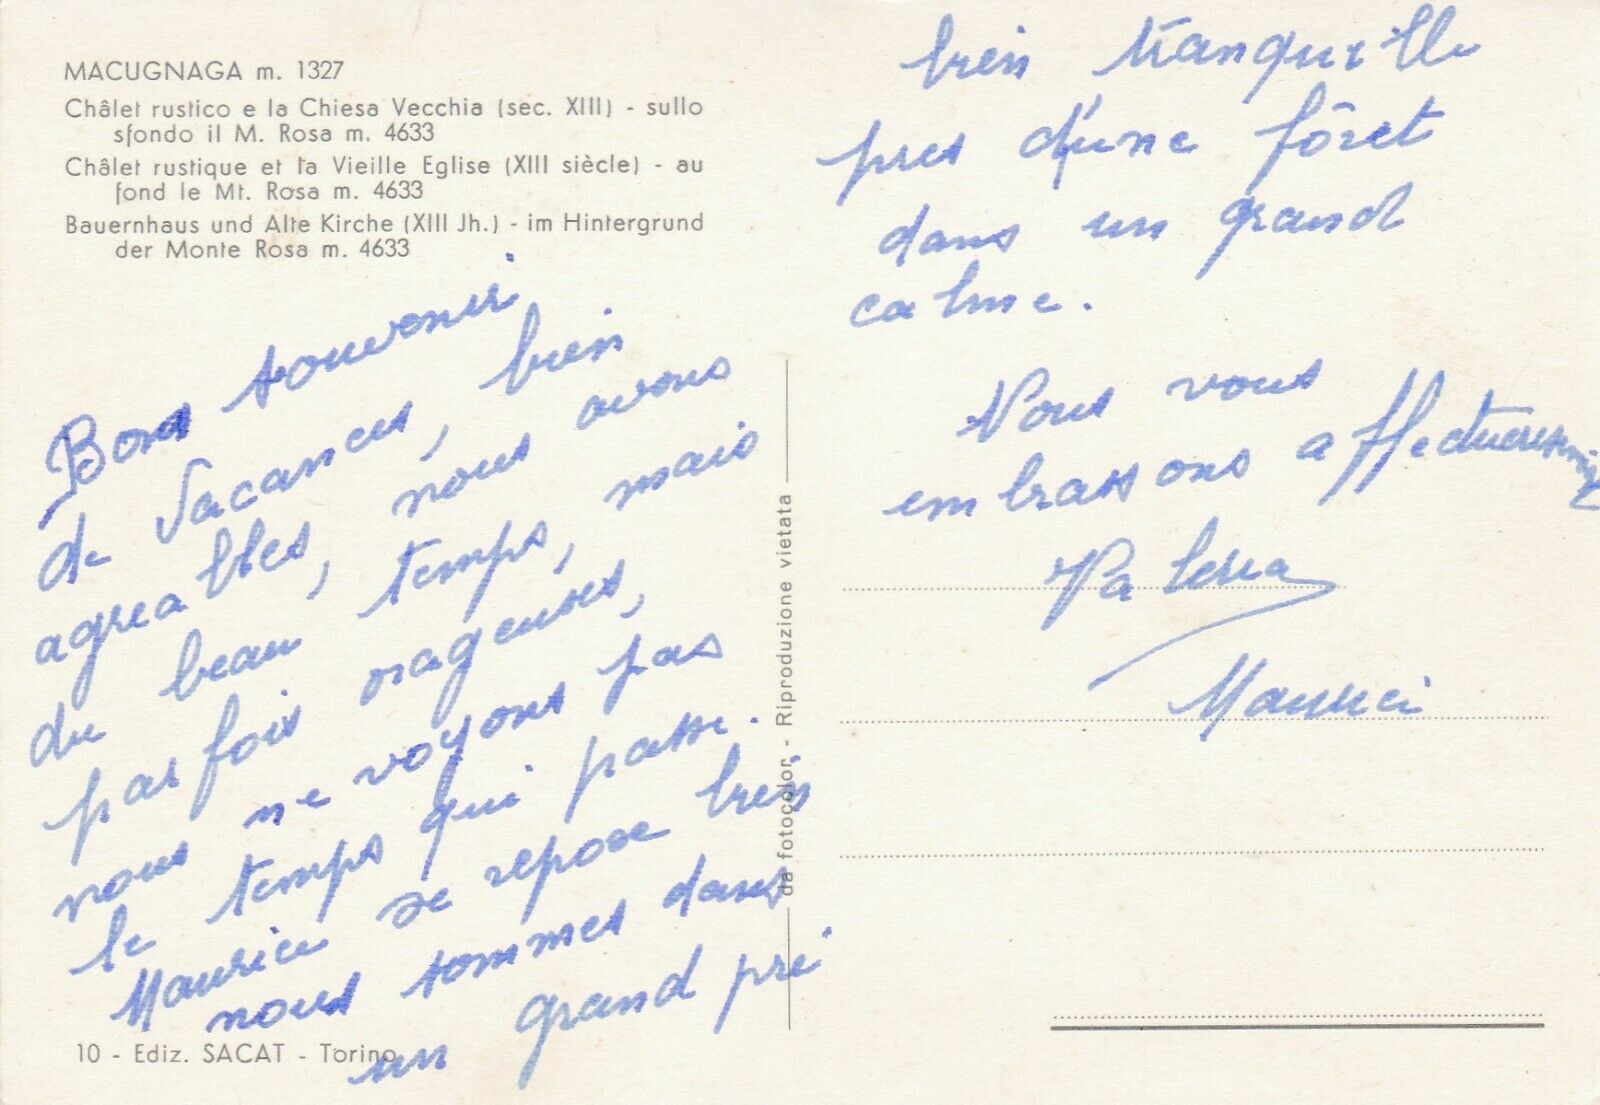 MACUGNAGA m. 1327
Châlet rustico e la Chiesa Vecchia (sec. XIII) - sullo
sfondo il M. Rosa m. 4633
Châlet rustique et la Vieille Eglise (XIII siècle) - au
fond le Mt. Rosa m. 4633
Bauernhaus und Alte Kirche (XIII Jh.) - im Hintergrund
der Monte Rosa m. 4633
Bons souvenir
de Vacances, bien
agreables, nous avons
du beau temps, mais
parfois orageuses,
nous ne voyons pas
le temps qui passe.
Maurice se repose bien
nous sommes dans
un grand pré
bien tranquille
pres d'une fôret
dans un grand
calme.
Nous vous
embrassons affectueusement
Maurice
da fotocolor - Riproduzione vietata
10 - Ediz. SACAT - Torino